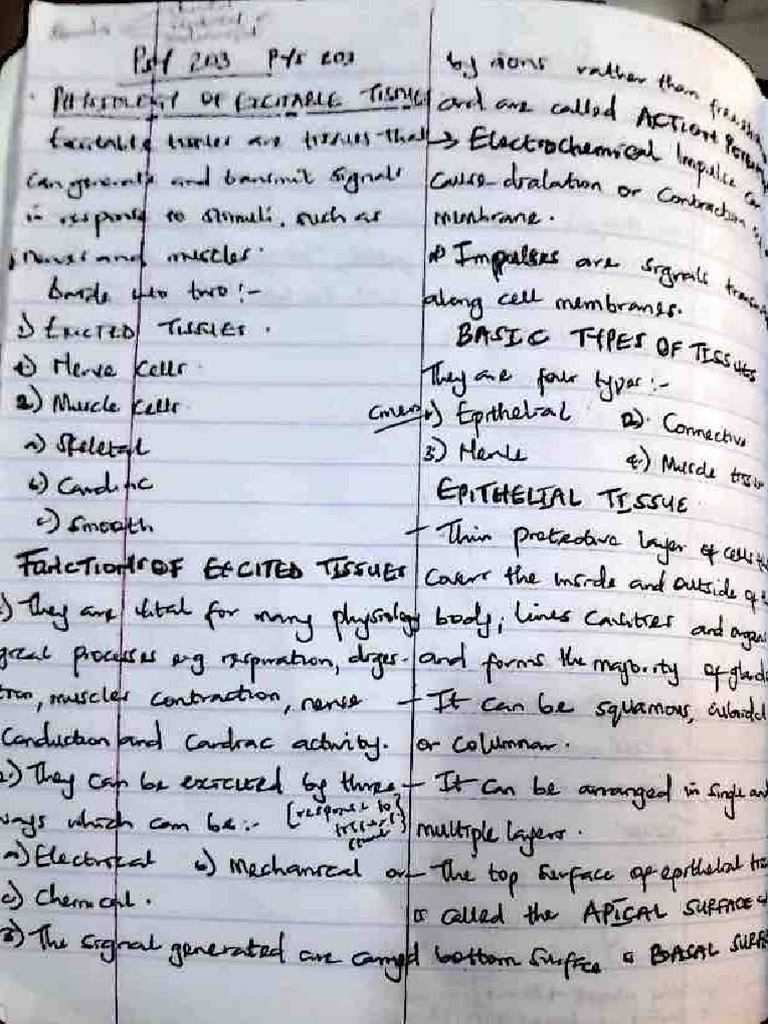 PSY 203 PYS 203
PHYSIOLOGY OF EXCITABLE TISSUES
Excitable tissues are tissues that
can generate and transmit signals
in response to stimuli, such as
nerves and muscles.
into two :-
1) EXCITED TISSUES.
1) Nerve cells.
2) Muscle cells.
a) Skeletal
b) Cardiac
c) Smooth
FUNCTIONS OF EXCITED TISSUES
1) They are vital for many physiology
gical processes e.g respiration, diges-
tion, muscles contraction, nerve
conduction and cardiac activity.
2.) They can be excited by three
ways which can be :- [response to
a) Electrical b) Mechanical or
c) Chemical.
3) The signal generated are carried
by ions rather than
and are called ACTION
→ Electrochemical Impulse
cause or contraction
membrane.
Impulses are signals
along cell membranes.
BASIC TYPES OF TISSUES
They are four types :-
1) Epithelial 2). Connective
3.) Nerve 4.) Muscle
EPITHELIAL TISSUE
- Thin protective layer of cells
covers the inside and outside of
body, lines cavities and
and forms the majority of
- It can be squamous,
or columnar.
- It can be arranged in single and
multiple layers.
- The top surface of epithelial
is called the APICAL SURFACE
bottom surface is BASAL